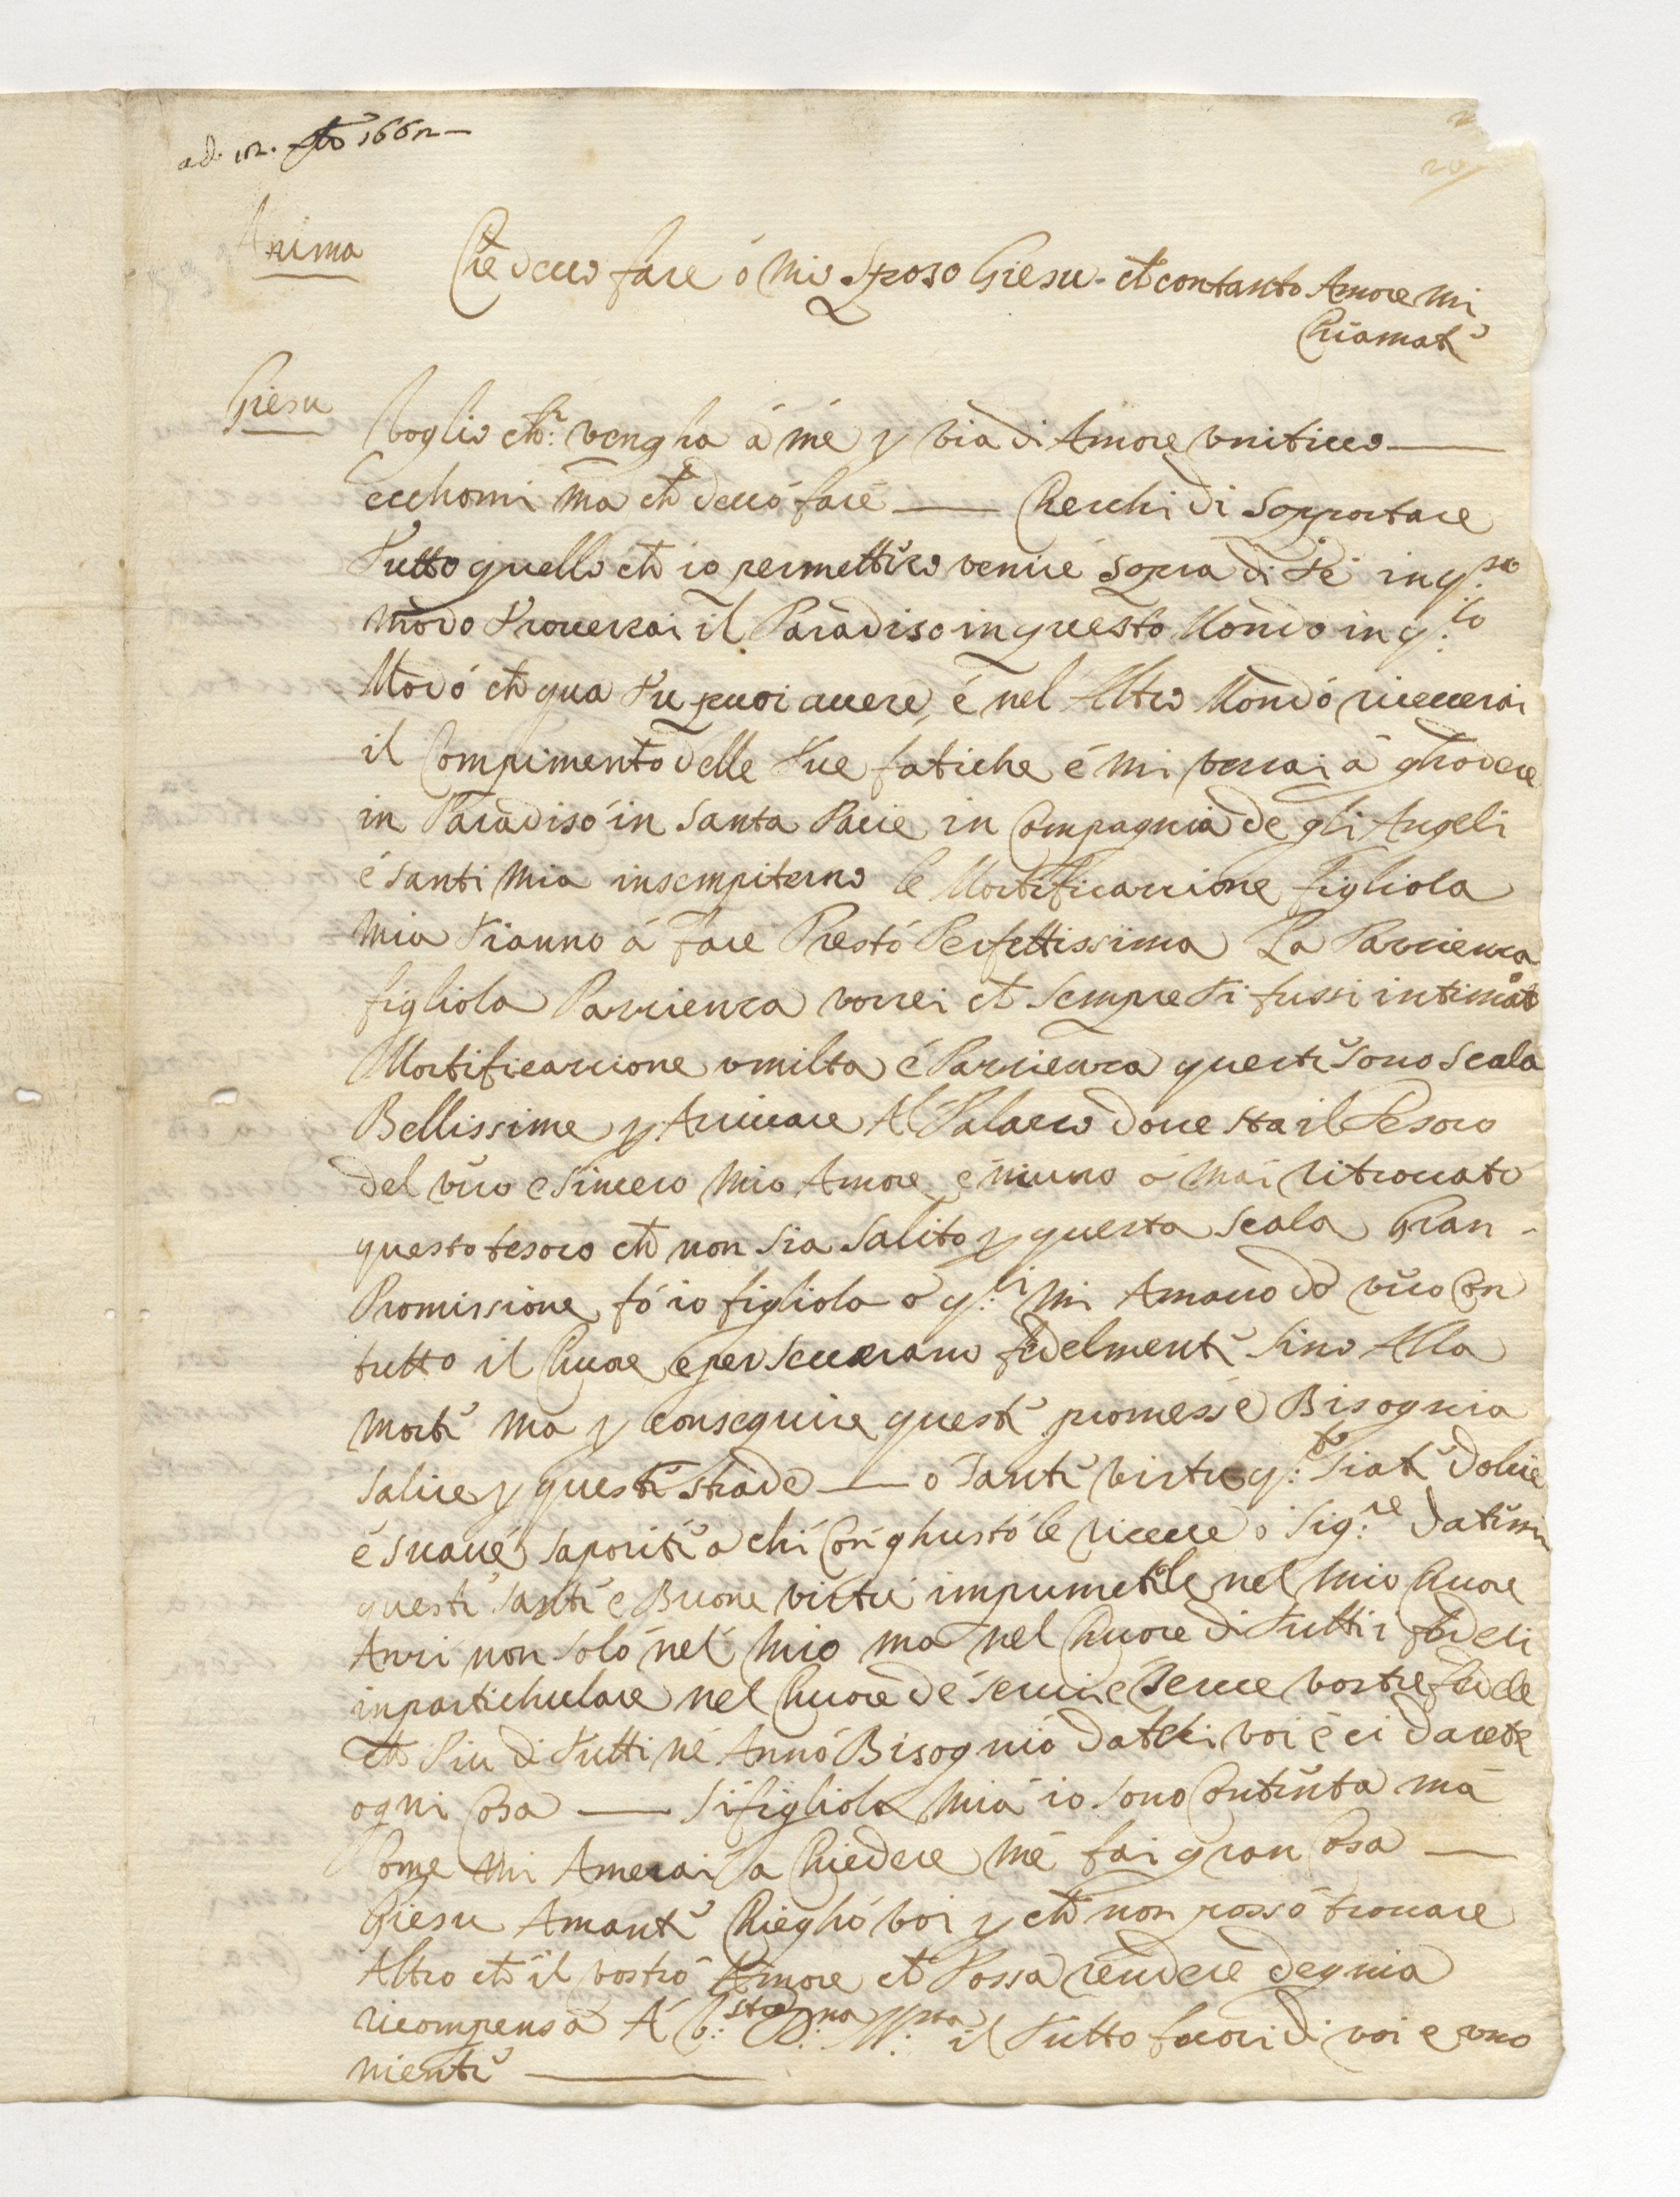 ad. 12. 1662
Anima
Che deuo fare ó mio Sposo Giesu. ch̃ con tanto Amore mi
Chiamatĕ
Giesu
Voglio ch̃: vengha á mé p via di Amore vnitiuo —
ecchomi ma ch̃ deuó faré — Cierchi di Sopportare
tutto quello ch̃ io permetterò veniré Sopra di té in q.sto
modo trouerrai il Paradiso in questo Mondo in q.lo
Modó ch̃ qua tu puoi auere, é nel Altro Mondó riceuerai
il Compimento delle tue fatiche é mi verrai á ghodere
in Paradisó in Santa Pacie in Compagnia de gli Angeli
é Santi mia insempiterno le Mortificazzione figliola
mia tianno á fare Prestó Perfettissima La Pazzienza
figliola Pazzienza vorrei ch̃ Sempre ti fussi intimato
Mortificazzione vmilta é Pazzienza questĕ Sono Scala
Bellissime p Arriuare Al Palazzo doue sta il Tesoro
del vero e Sincero mio Amore e niuno á mai ritrouato
questo tesoro ch̃ non Sia Salito p questa Scala Gran
Promissione fó io figliola a q.li mi Amano da vero Con
tutto il Chuore e perseuerano fedelmentĕ Sino Alla
mortĕ ma p conseguire questĕ promessé Bisognia
Salire p questĕ strade — o Santĕ virtu q.to Siatĕ dolcie
é Suaué Saporitĕ a chi Con ghustó le riceue o Sig.re datĕmi
questĕ Santĕ e Buone virtú imprimetele nel mio Chuore
Anzi non Soló nel mio ma nel Chuore di tutti i fedeli
in partichulare nel Chuore dé Serui é Serue vostre fedele
ch̃ Piu di tutti né Annó Bisognió dateci voi é ci darete
ogni Cosa — Si figliola mia io Sono Contĕnta má
Come mi Amerai a Chiedere mé fai gran Cosa —
Giesu Amantĕ Chieghó voi p ch̃ non possó trouare
Altro ch̃ il vostró Amore ch̃ Possa rendere degnia
ricompensa Á il tutto fuori di voi e vno
nientĕ —